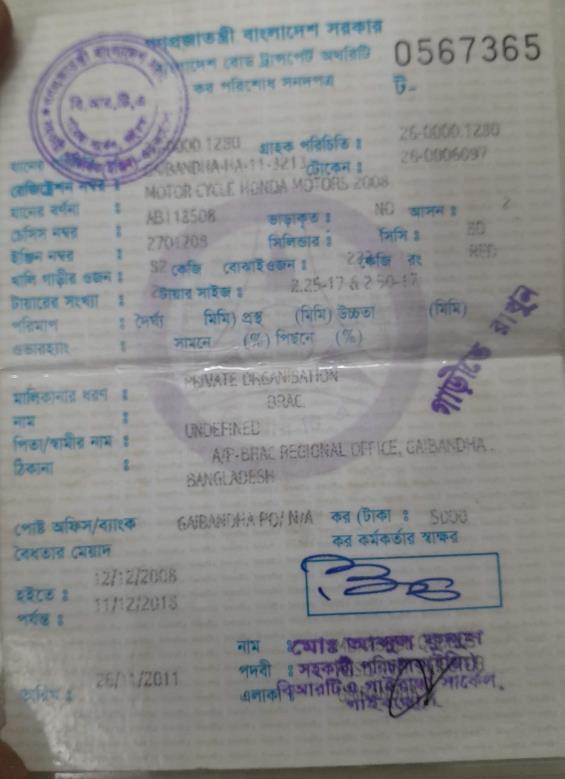 গণপ্রজাতন্ত্রী বাংলাদেশ সরকার
বাংলাদেশ রোড ট্রান্সপোর্ট অথরিটি
কর পরিশোধ সনদপত্র
0567365
ট-
বি,আর,টি,এ
0000.1280 গ্রাহক পরিচিতি : 26-0000.1280
GAIBANDHA-HA-11-3213 টোকেন : 26-0006097
রেজিস্ট্রেশন নম্বর :
যানের বর্ণনা : MOTOR CYCLE HONDA MOTORS 2008
চেসিস নম্বর : AB118508 ভাড়াকৃত : NO আসন : 2
ইঞ্জিন নম্বর : 2701208 সিলিন্ডার : সিসি : 80
খালি গাড়ীর ওজন : 82 কেজি বোঝাই ওজন : কেজি রং RED
টায়ারের সংখ্যা : 2 টায়ার সাইজ : 2.25-17 & 2.50-17
পরিমাপ : দৈর্ঘ্য (মিমি) প্রস্থ (মিমি) উচ্চতা (মিমি)
ওভারহ্যাং : সামনে (%) পিছনে (%)
গাড়ীতে রাখুন
মালিকানার ধরণ : PRIVATE ORGANISATION
নাম : BRAC
পিতা/স্বামীর নাম : UNDEFINED
ঠিকানা : A/P-BRAC REGIONAL OFFICE, GAIBANDHA,
BANGLADESH
পোষ্ট অফিস/ব্যাংক GAIBANDHA PO/ N/A কর (টাকা : 5000
বৈধতার মেয়াদ কর কর্মকর্তার স্বাক্ষর
হইতে : 12/12/2008
পর্যন্ত : 11/12/2018
নাম : মোঃ আব্দুল
পদবী : সহকারী পরিচালক
তারিখ : 26/11/2011 এলাকা : বিআরটিএ গাইবান্ধা সার্কেল,
গাইবান্ধা।